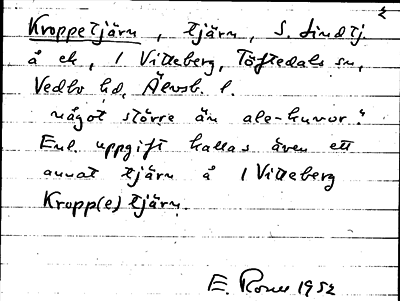 2
Kroppetjärn, tjärn, S. Lindtj.
å ek, 1 Vitteberg, Töftedals sn,
Vedbo hd, Älvsb. l.
"något större än ale-kuror."
Enl. uppgift kallas även ett
annat tjärn å 1 Vitteberg
Kropp(e)tjärn.
E. 1952